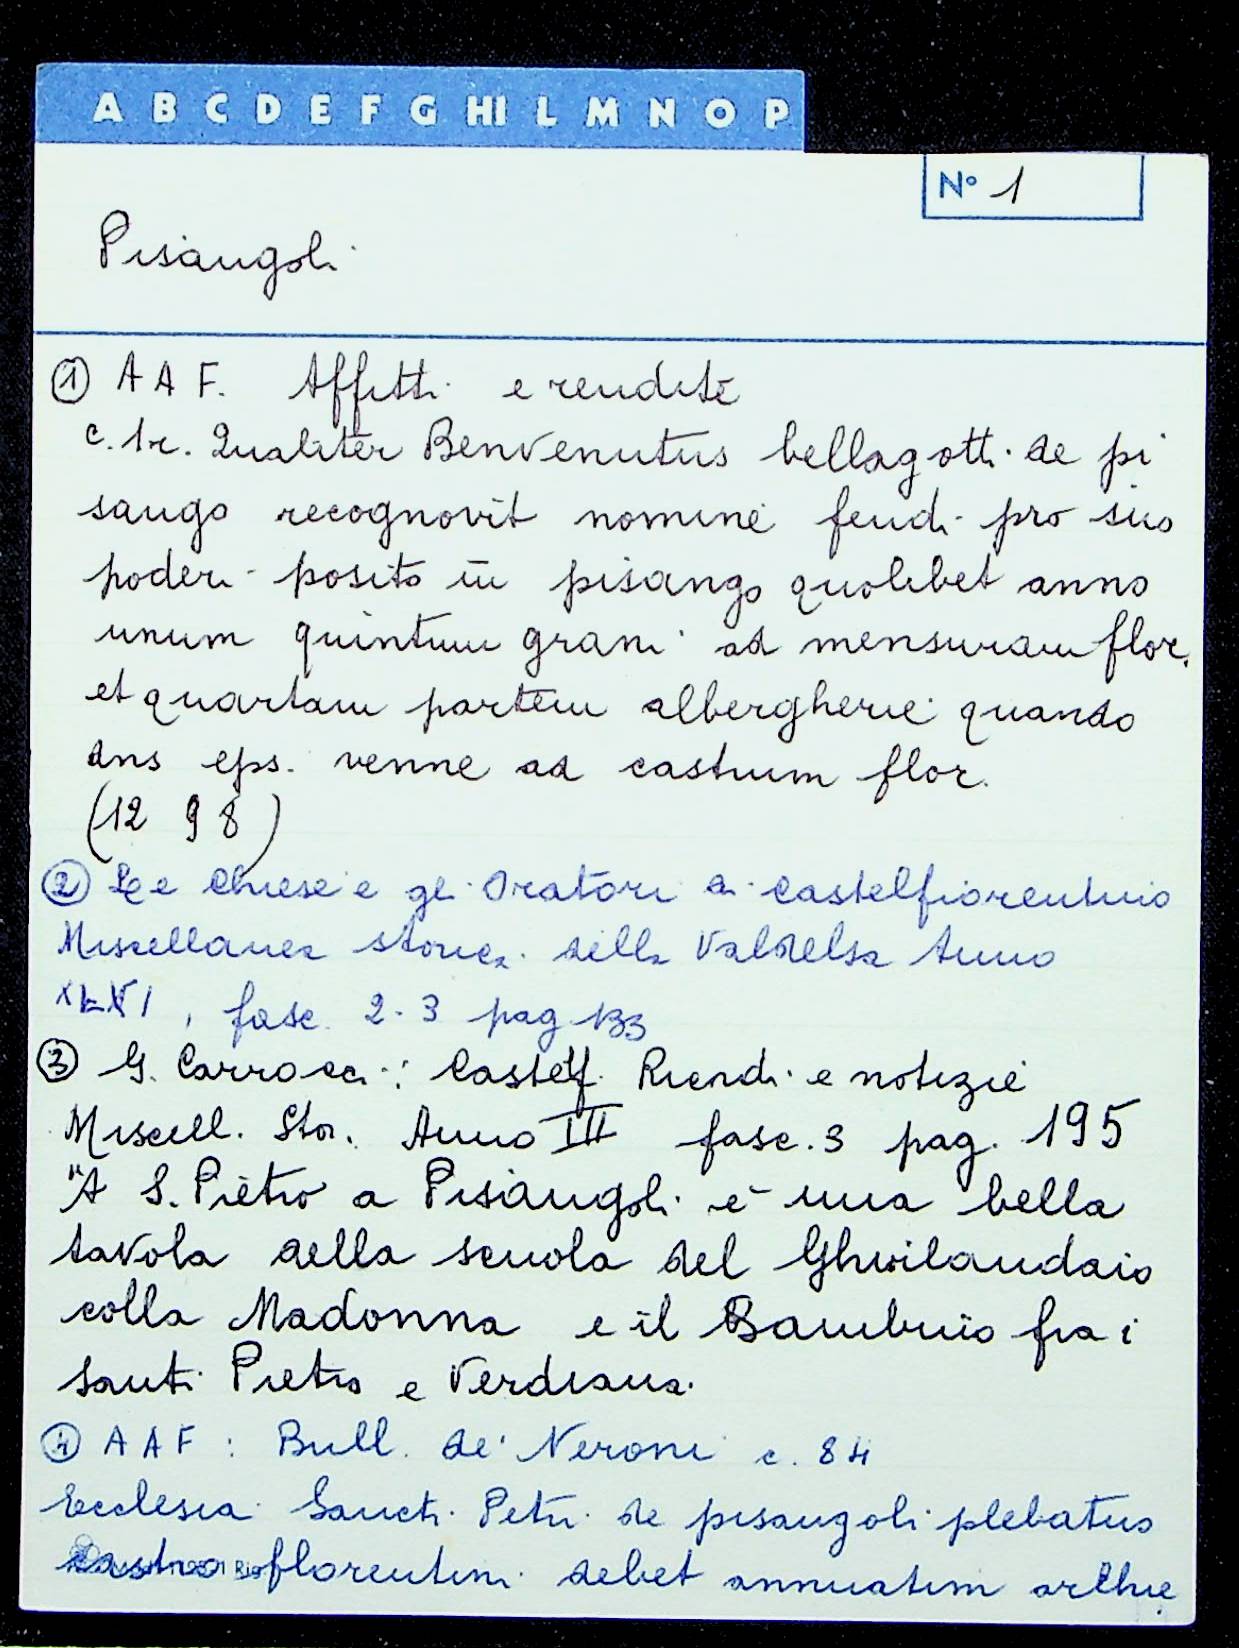 A B C D E F G HI L M N O P
N° 1
Pisangoli
① A A F. Affitti e rendite
c. 1r. Qualiter Benvenutus bellagotti de pi
sango recognovit nomine feudi pro suo
poderi posito in pisango quolibet anno
unum quintum grani ad mensuram flor.
et quartam partem albergherie quando
dns eps. venne ad castrum flor.
(12 98)
② Le Chiese e gli Oratori di Castelfiorentino
Miscellanea storica della Valdelsa Anno
XLVI, fasc. 2-3 pag 133
③ G. Carrocci: Castelf. Ricordi e notizie
Miscell. Stor. Anno III fasc. 3 pag. 195
"A S. Pietro a Pisangoli è una bella
tavola della scuola del Ghirlandaio
colla Madonna e il Bambino fra i
Santi Pietro e Verdiana.
④ A A F: Bull. de' Neroni c. 84
Ecclesia Sancti Petri de pisangoli plebatus
castro florentini debet annuatim